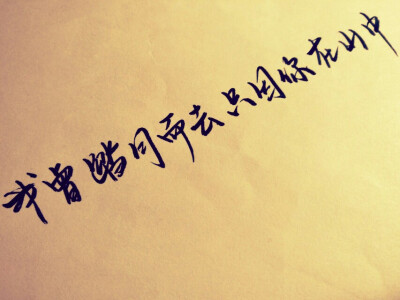 我曾踏月而去只因你在山中